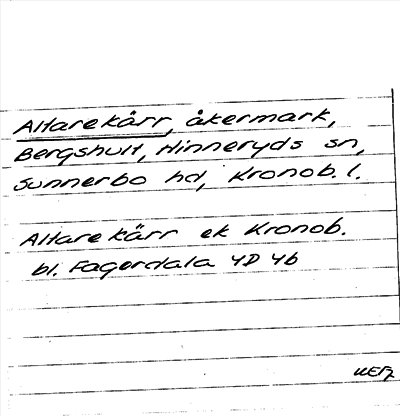 Altarekärr, åkermark,
Bergshult, Hinneryds sn,
Sunnerbo hd, Kronob. l.
Altarekärr ek Kronob.
bl. Fagerdala 4D 4b